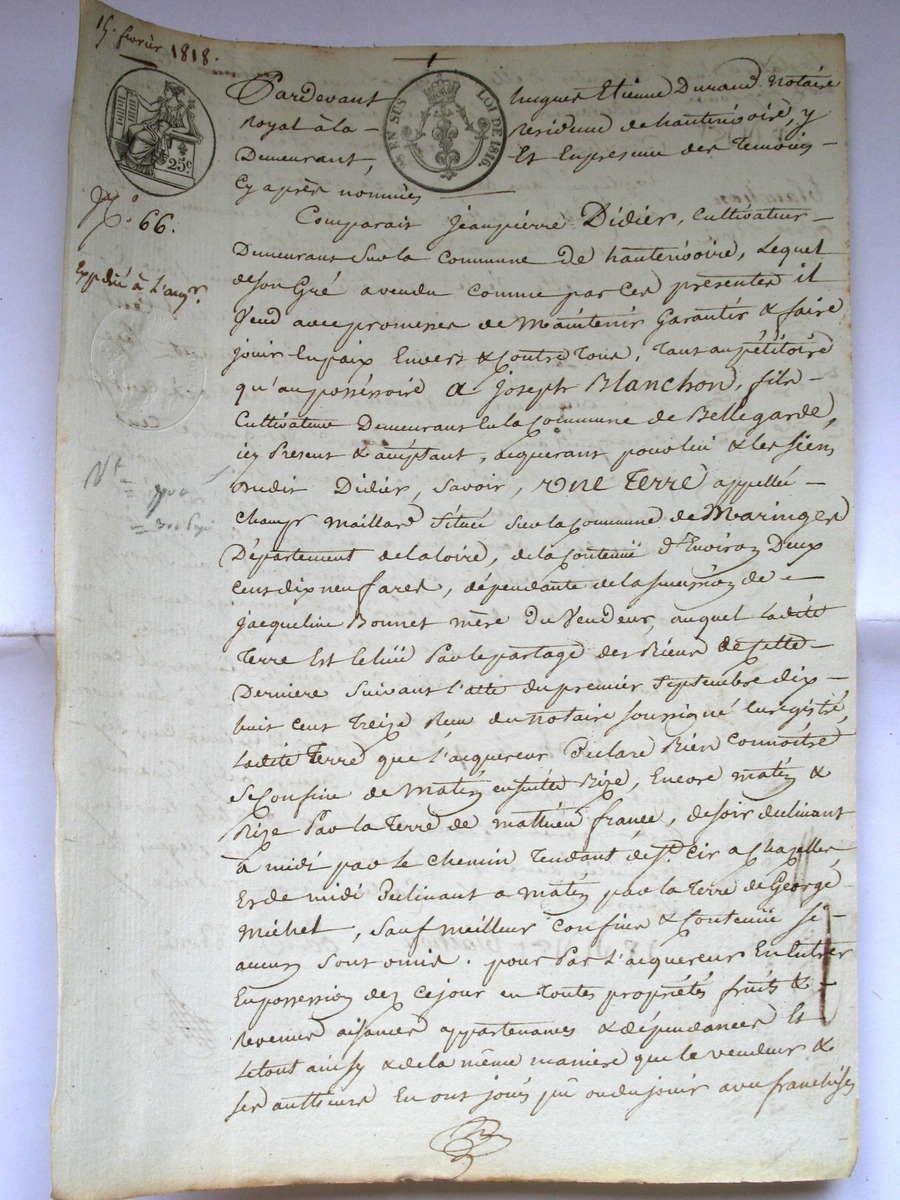 15 fevrier 1818.
25c
EN SUS
LOI DE 1816.
N.o 66.
Expedié à L'aqr.
Pardevant hugues Etienne Durand notaire
royal à la residence de hauterivoire, y
Demeurant Et En presence des Temoins
Cy après nommés
Comparait Jean pierre Didier, Cultivateur
Demeurant Sur la Commune De hauterivoire, Lequel
de son Gré a vendu Comme par Ces presentes il
Vend avec promesse de Maintenir Garantir & faire
jouir En paix Envers & Contre Tous, Tant au pétitoire
qu'au possessoire a joseph Blanchon, fils
Cultivateur Demeurant En la Commune de Bellegarde,
icy Present & acceptant, acquerant pour lui & les Siens
dudit Didier, Savoir, une Terre appellée
Champ maillard Située Sur la Commune de Maringes
Département de la Loire, de la Contenüe d'Environ Deux
Cent dix neuf ares, dépendante de la succession de
jacqueline Bonnet mère du Vendeur, auquel Ladite
Terre Est Echüe Par le partage des Biens de Cette
Derniere Suivant l'acte du premier Septembre dix
huit Cent Treize Recu du notaire soussigné Enregistré,
Ladite Terre que L'acquereur Declare Bien Connoitre
Se Confine de Matin Bize, Encore matin &
Bize Par La Terre de mathieu france, de soir declinant
à midi par Le Chemin Tendant de St. Cir a Chazelles,
Et de midi Declinant a Matin par La Terre de George
Michel, Sauf meilleur Confins & Contenüe Si
aucun Sont omis. pour Par L'acquereur En Entrer
En possession dez Ce jour en Toutes propriétés fruits &
revenus aisances appartenances & dépendances Et
Le tout ainsy & de la même maniere que Le vendeur &
Ses autheurs En ont joui pu ou du jouir avec franchises